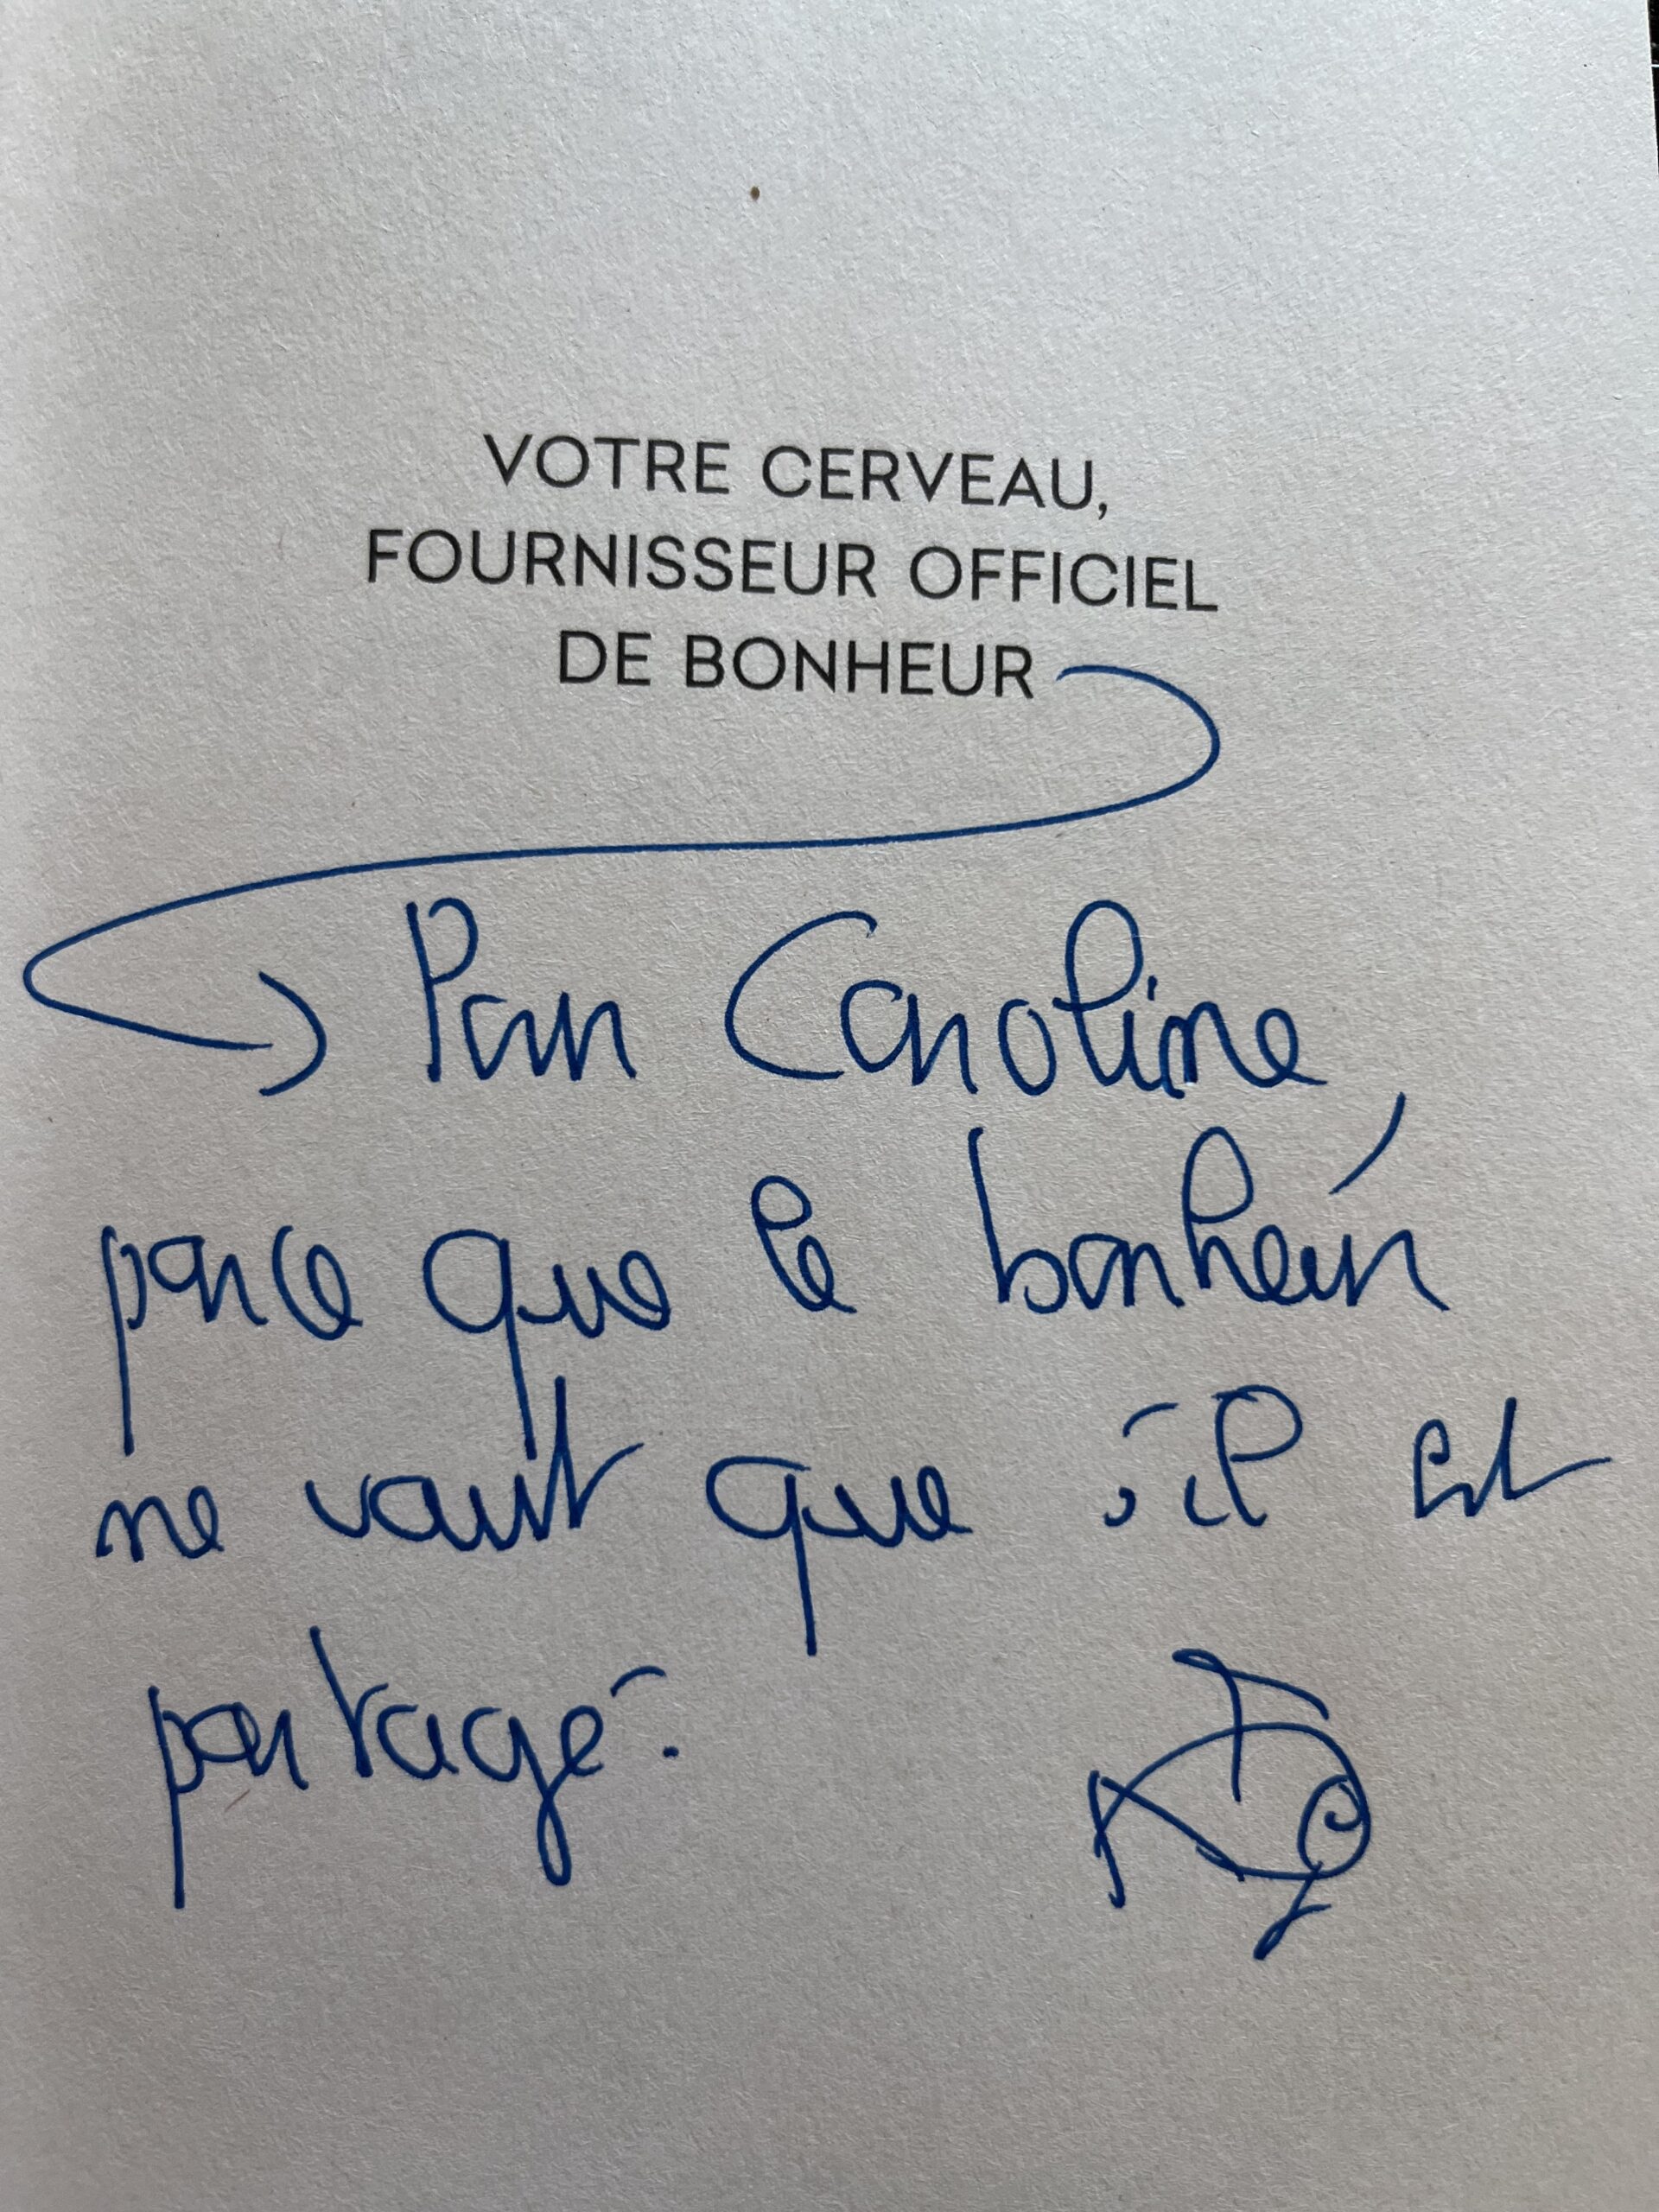 VOTRE CERVEAU,
FOURNISSEUR OFFICIEL
DE BONHEUR
Pour Caroline,
parce que le bonheur
ne vaut que s'il est
partagé.